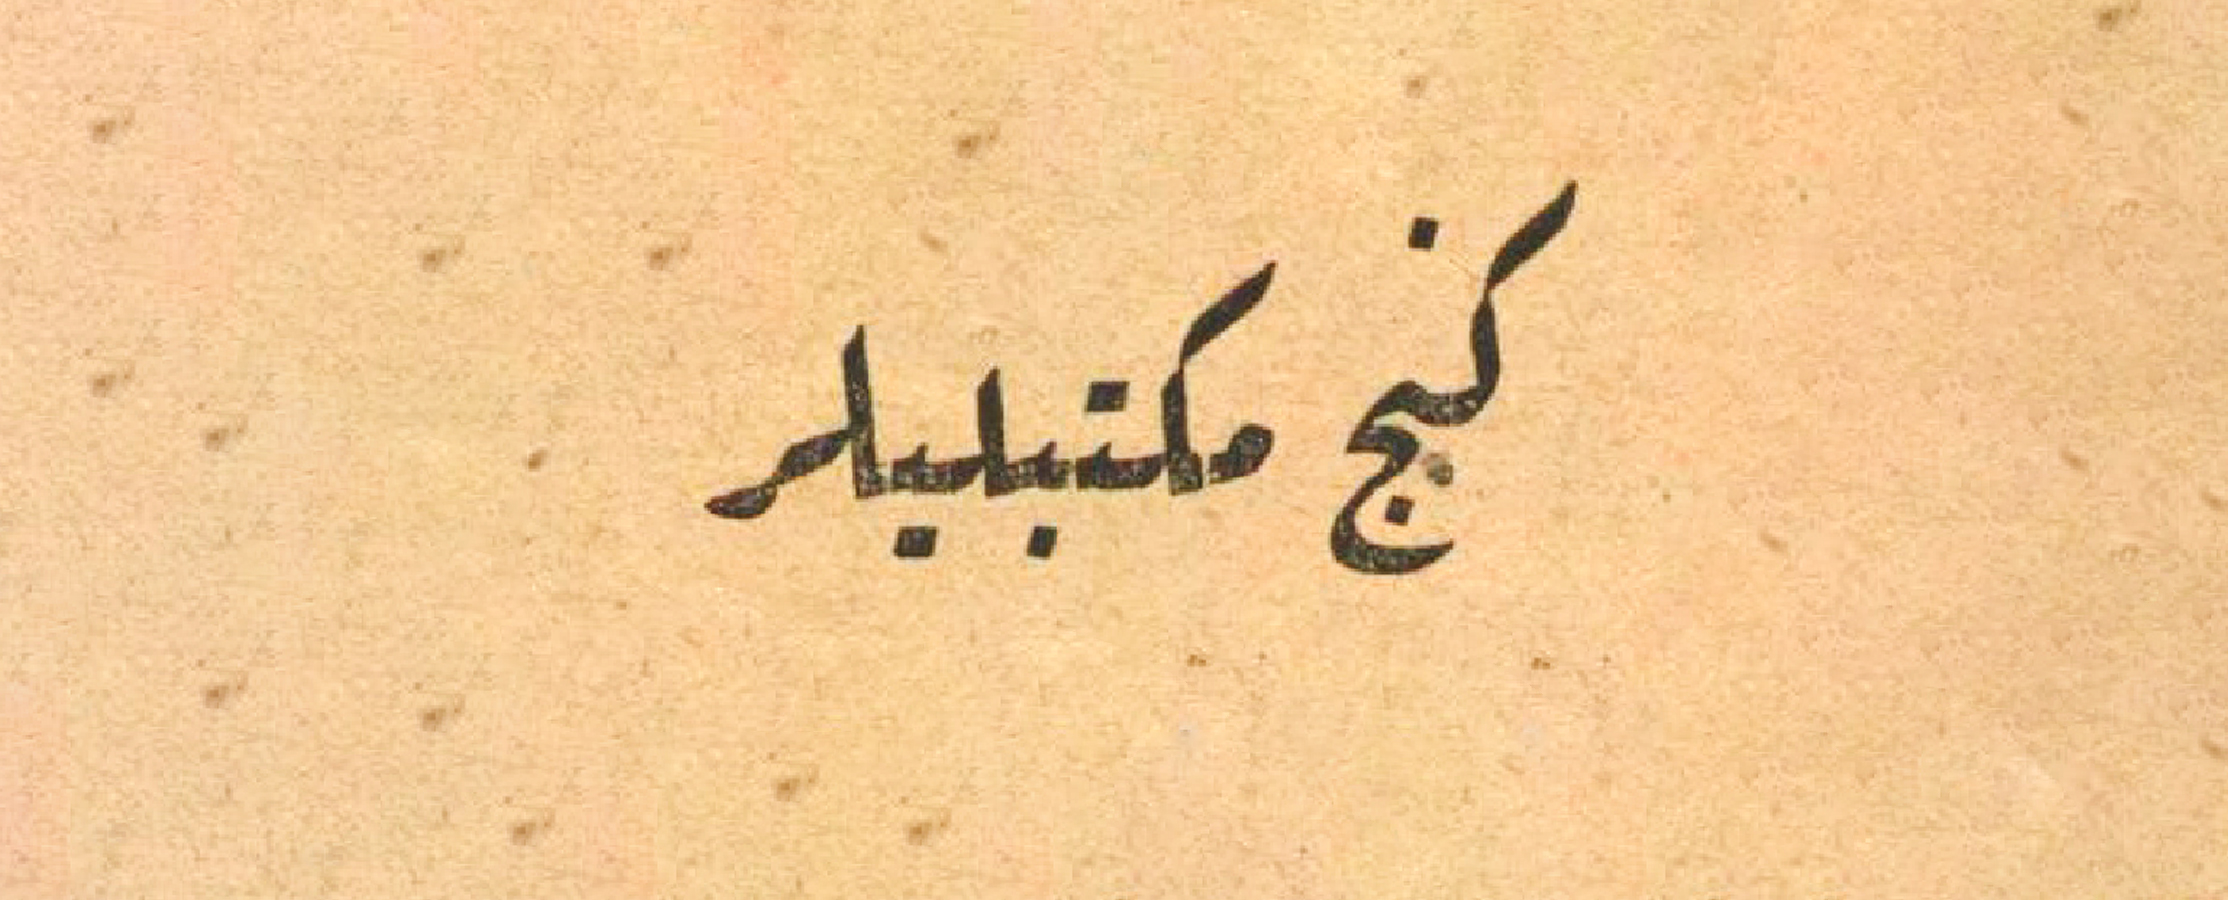 كنج مكتبليلر